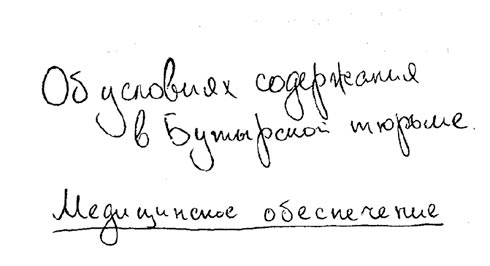 Об условиях содержания
в Бутырской тюрьме.
Медицинское обеспечение